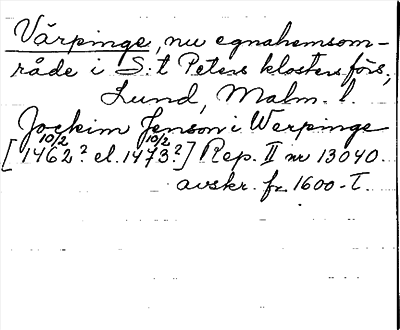 Värpinge, nu egnahemsom-
råde i S:t Peters klosters förs.,
Lund, Malm. l.
Jockim Jenson i Werpinge
10/2 10/2
[1462? el. 1473?] Rep. II nr 13040.
avskr. fr. 1600-t.